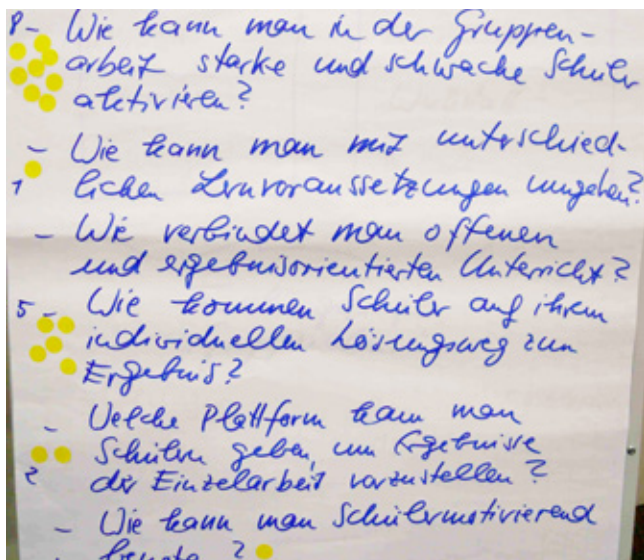 8- Wie kann man in der Gruppen-
arbeit starke und schwache Schüler
aktivieren?
- Wie kann man mit unterschied-
1 lichen Lernvoraussetzungen umgehen?
- Wie verbindet man offenen
und ergebnisorientierten Unterricht?
5 - Wie kommen Schüler auf ihrem
individuellen Lösungsweg zum
Ergebnis?
- Welche Plattform kann man
Schülern geben, um Ergebnisse
2 der Einzelarbeit vorzustellen?
- Wie kann man Schülermotivierend
- ?